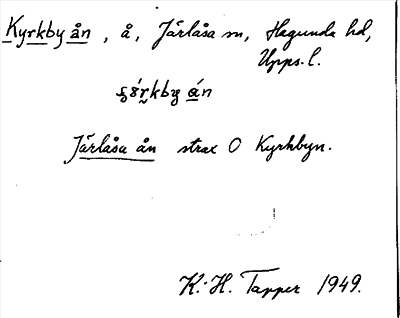 Kyrkby ån, å, Järlåsa sn, Hagunda hd,
Upps. l.
Järlåsa ån strax O Kyrkbyn.
K.-H. Tapper 1949.